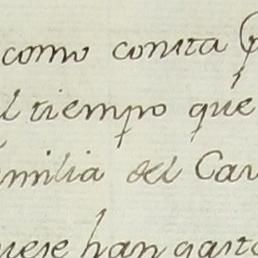 como consta
el tiempo que
familia del Cav
uese han gast